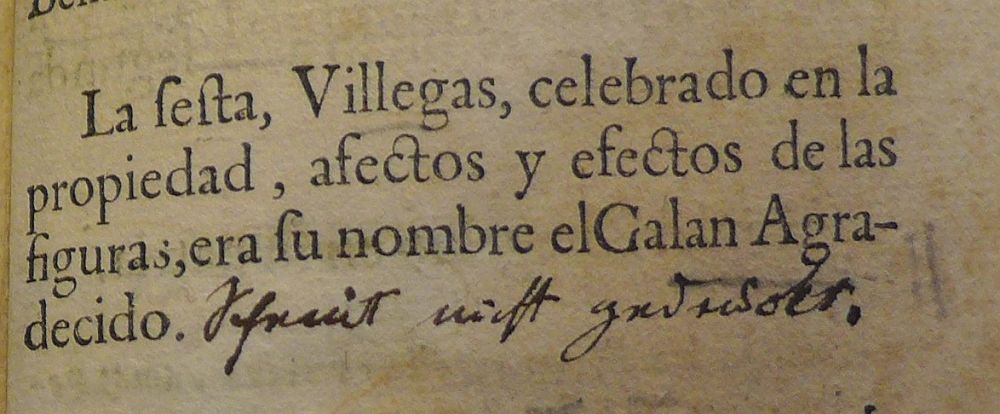 La ſeſta, Villegas, celebrado en la
propiedad, afectos y efectos de las
figuras, era ſu nombre el Galan Agra-
decido. Scheint nicht gedruckt.